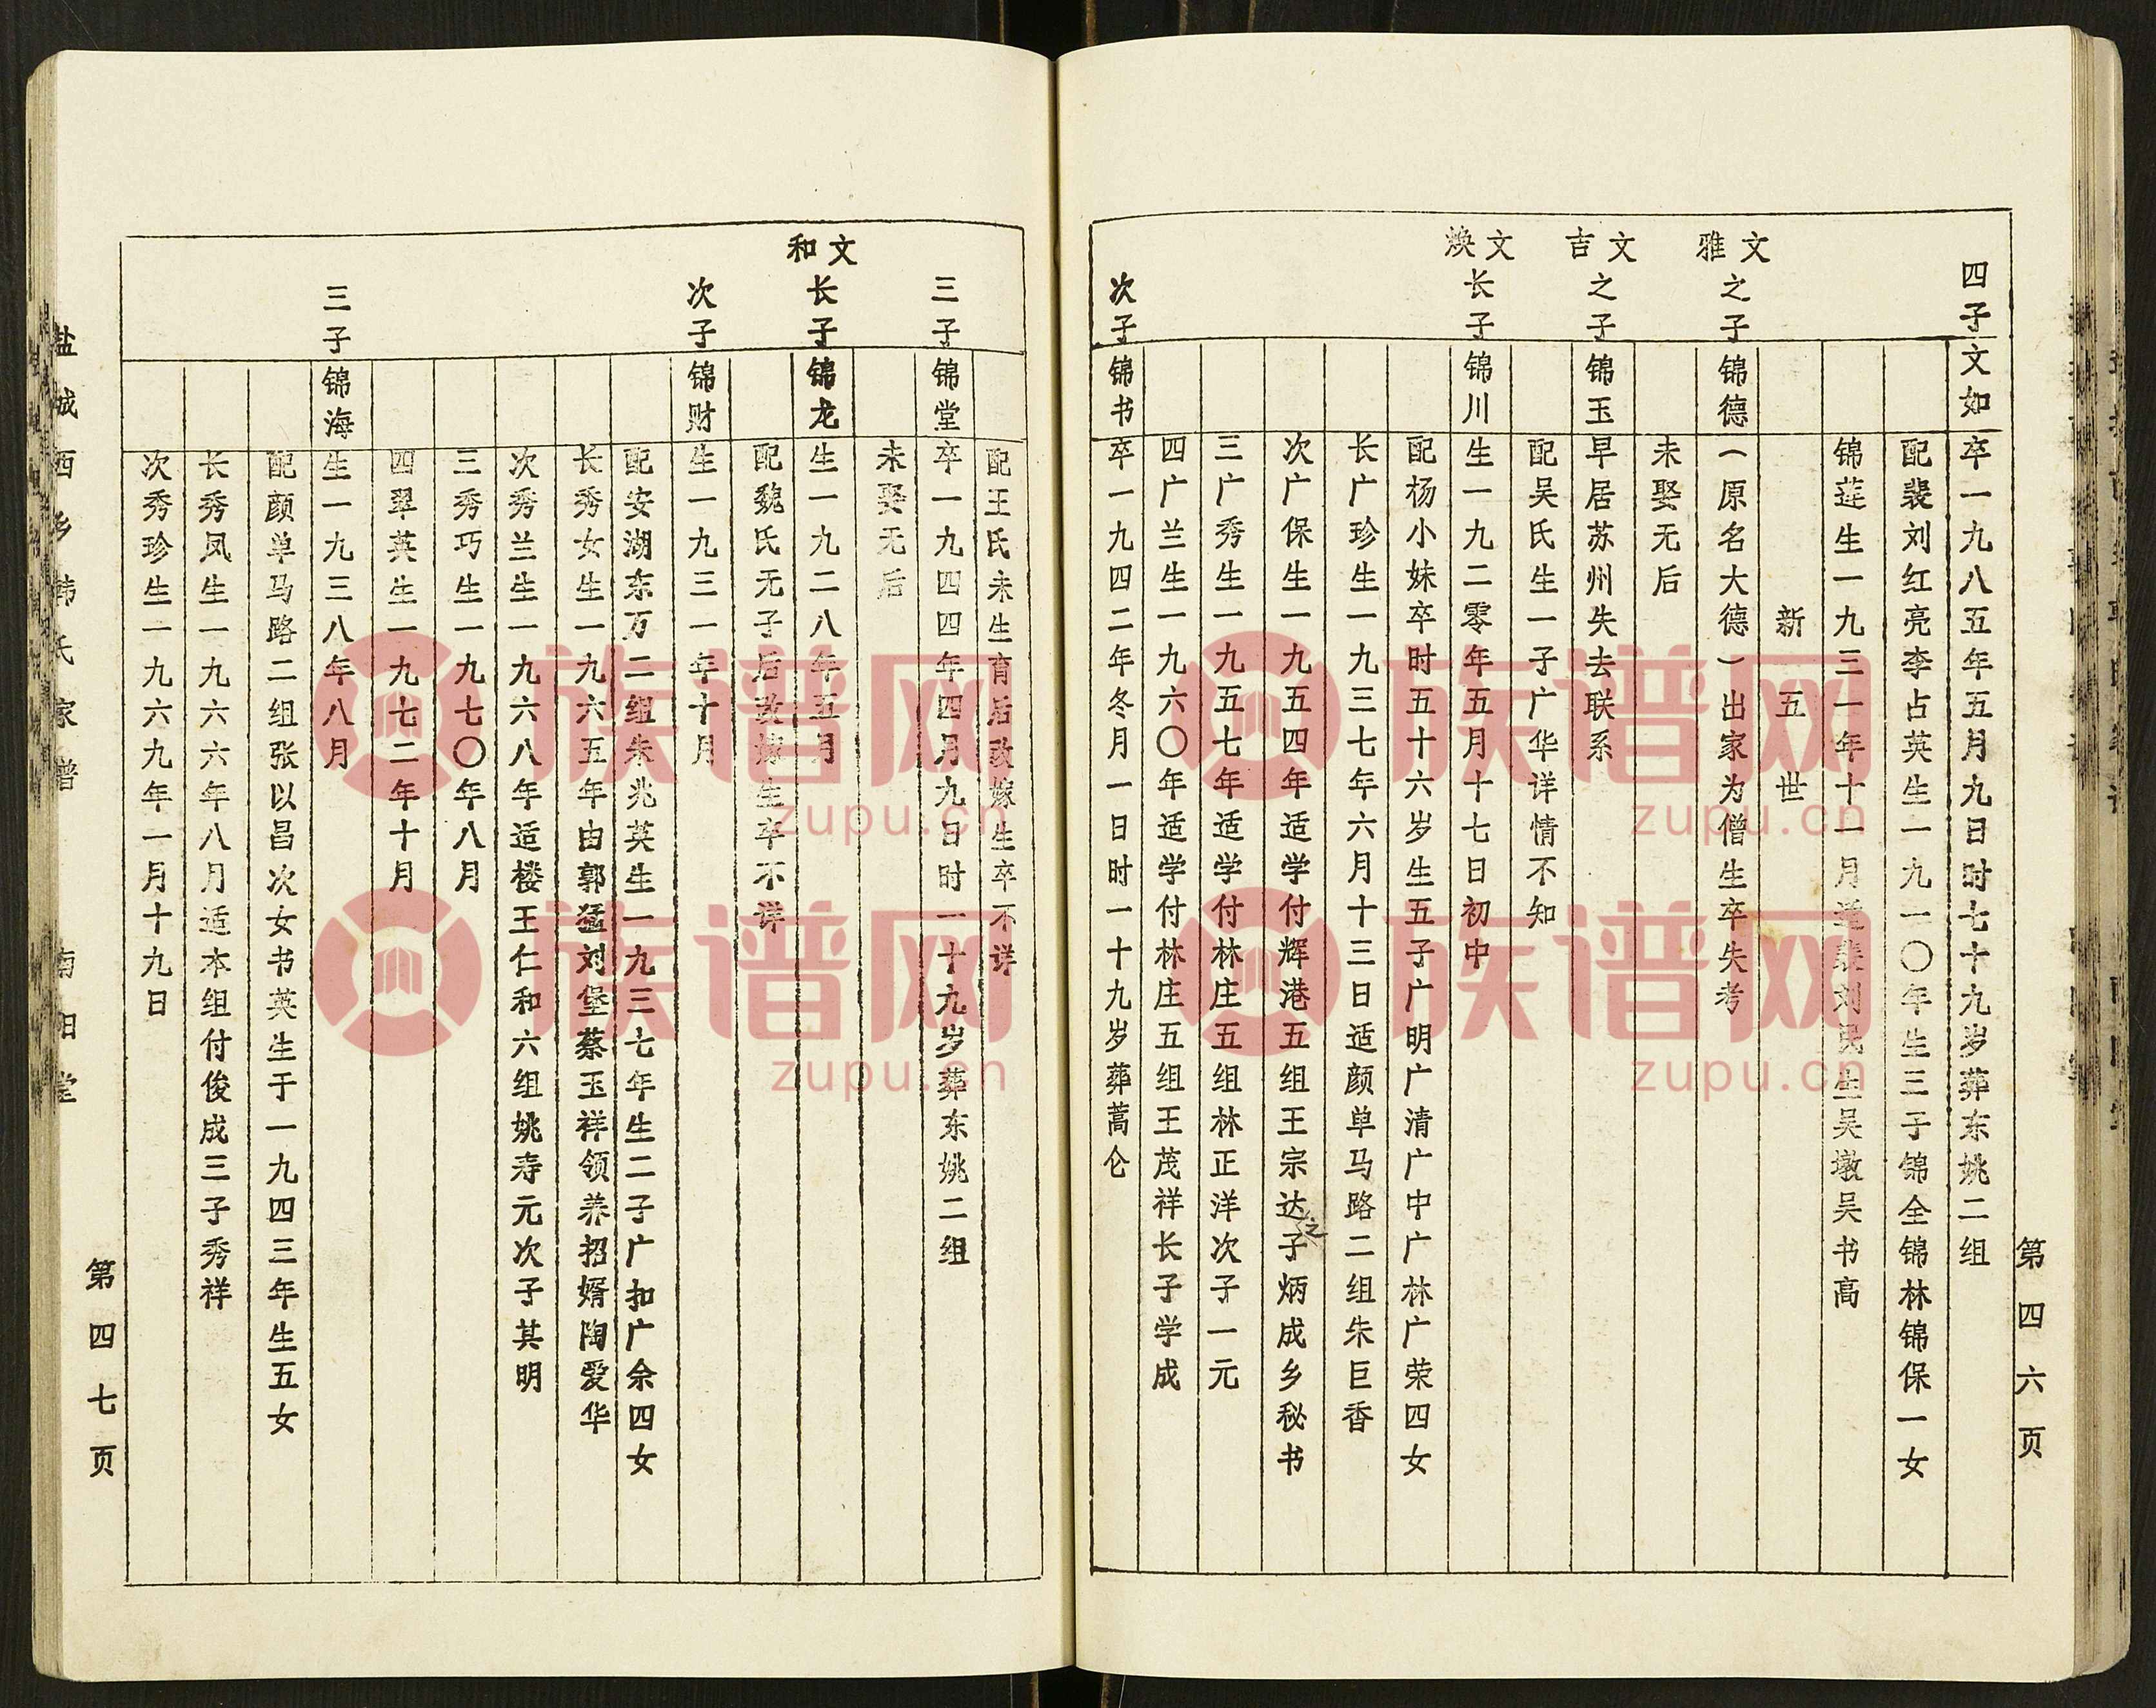 第四六页
四子
文如
卒一九八五年五月九日时七十九岁葬东姚二组
配裴刘红亮李占英生一九一〇年生三子锦全锦林锦保一女
锦莲生一九三一年十一月适裴刘民生吴墩吴书高
新五世
文雅之子
锦德
（原名大德）出家为僧生卒失考
未娶无后
文吉之子
锦玉
早居苏州失去联系
配吴氏生一子广华详情不知
文焕长子
锦川
生一九二零年五月十七日初中
配杨小妹卒时五十六岁生五子广明广清广中广林广荣四女
长广珍生一九三七年六月十三日适颜单马路二组朱巨香
次广保生一九五四年适学付辉港五组王宗达之子炳成乡秘书
三广秀生一九五七年适学付林庄五组林正洋次子一元
四广兰生一九六〇年适学付林庄五组王茂祥长子学成
次子
锦书
卒一九四二年冬月一日时一十九岁葬蒿仑
配王氏未生育后改嫁生卒不详
三子
锦堂
卒一九四四年四月九日时一十九岁葬东姚二组
未娶无后
文和长子
锦龙
生一九二八年五月
配魏氏无子后改嫁生卒不详
次子
锦财
生一九三一年十月
配安湖东万二组朱兆英生一九三七年生二子广扣广余四女
长秀女生一九六五年由郭猛刘堡蔡玉祥领养招婿陶爱华
次秀兰生一九六八年适楼王仁和六组姚寿元次子其明
三秀巧生一九七〇年八月
四翠英生一九七二年十月
三子
锦海
生一九三八年八月
配颜单马路二组张以昌次女书英生于一九四三年生五女
长秀凤生一九六六年八月适本组付俊成三子秀祥
次秀珍生一九六九年一月十九日
第四七页
盐城西乡韩氏家谱
南阳堂
族谱网
zupu.cn
族谱网
zupu.cn
族谱网
zupu.cn
族谱网
zupu.cn